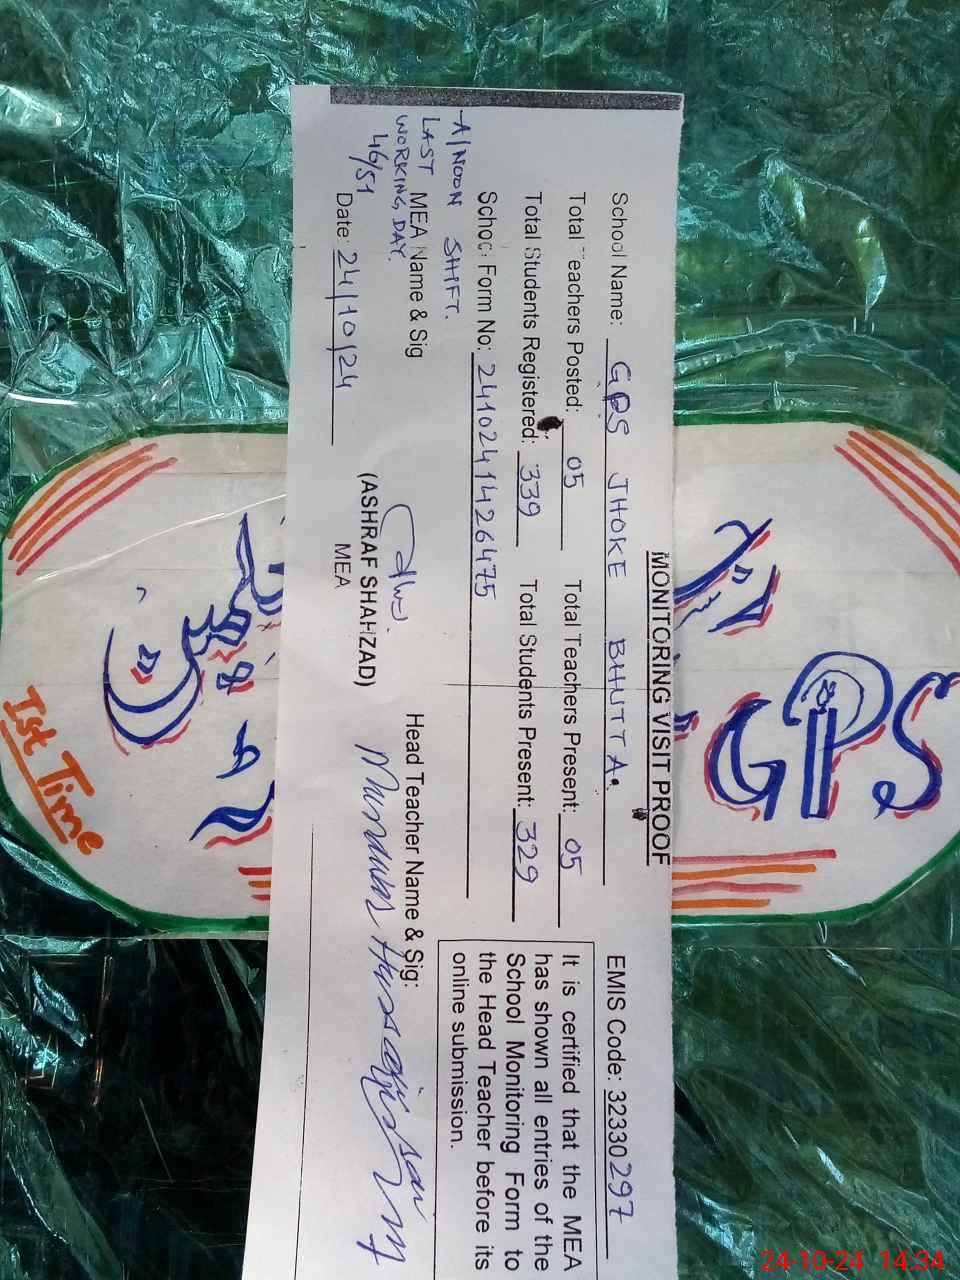 MONITORING VISIT PROOF
School Name: GPS JHOKE BHUTTA. EMIS Code: 32330297
Total Teachers Posted: 05 Total Teachers Present: 05
Total Students Registered: 339 Total Students Present: 329
School Form No: 2410241426475
It is certified that the MEA
has shown all entries of the
School Monitoring Form to
the Head Teacher before its
online submission.
A/NOON SHIFT.
LAST
WORKING DAY.
46/51
MEA Name & Sig
Head Teacher Name & Sig:
(ASHRAF SHAHZAD)
MEA
Date: 24/10/24
GPS
Ist Time
24-10-24 14:34